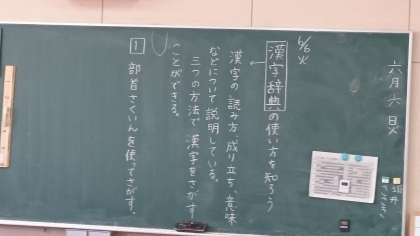 六月六日火
坂井
ささき
6/6
火
漢字辞典の使い方を知ろう
漢字の読み方、成り立ち、意味
などについて説明している。
三つの方法で漢字をさがす
ことができる。
1 部首さくいんを使ってさがす。